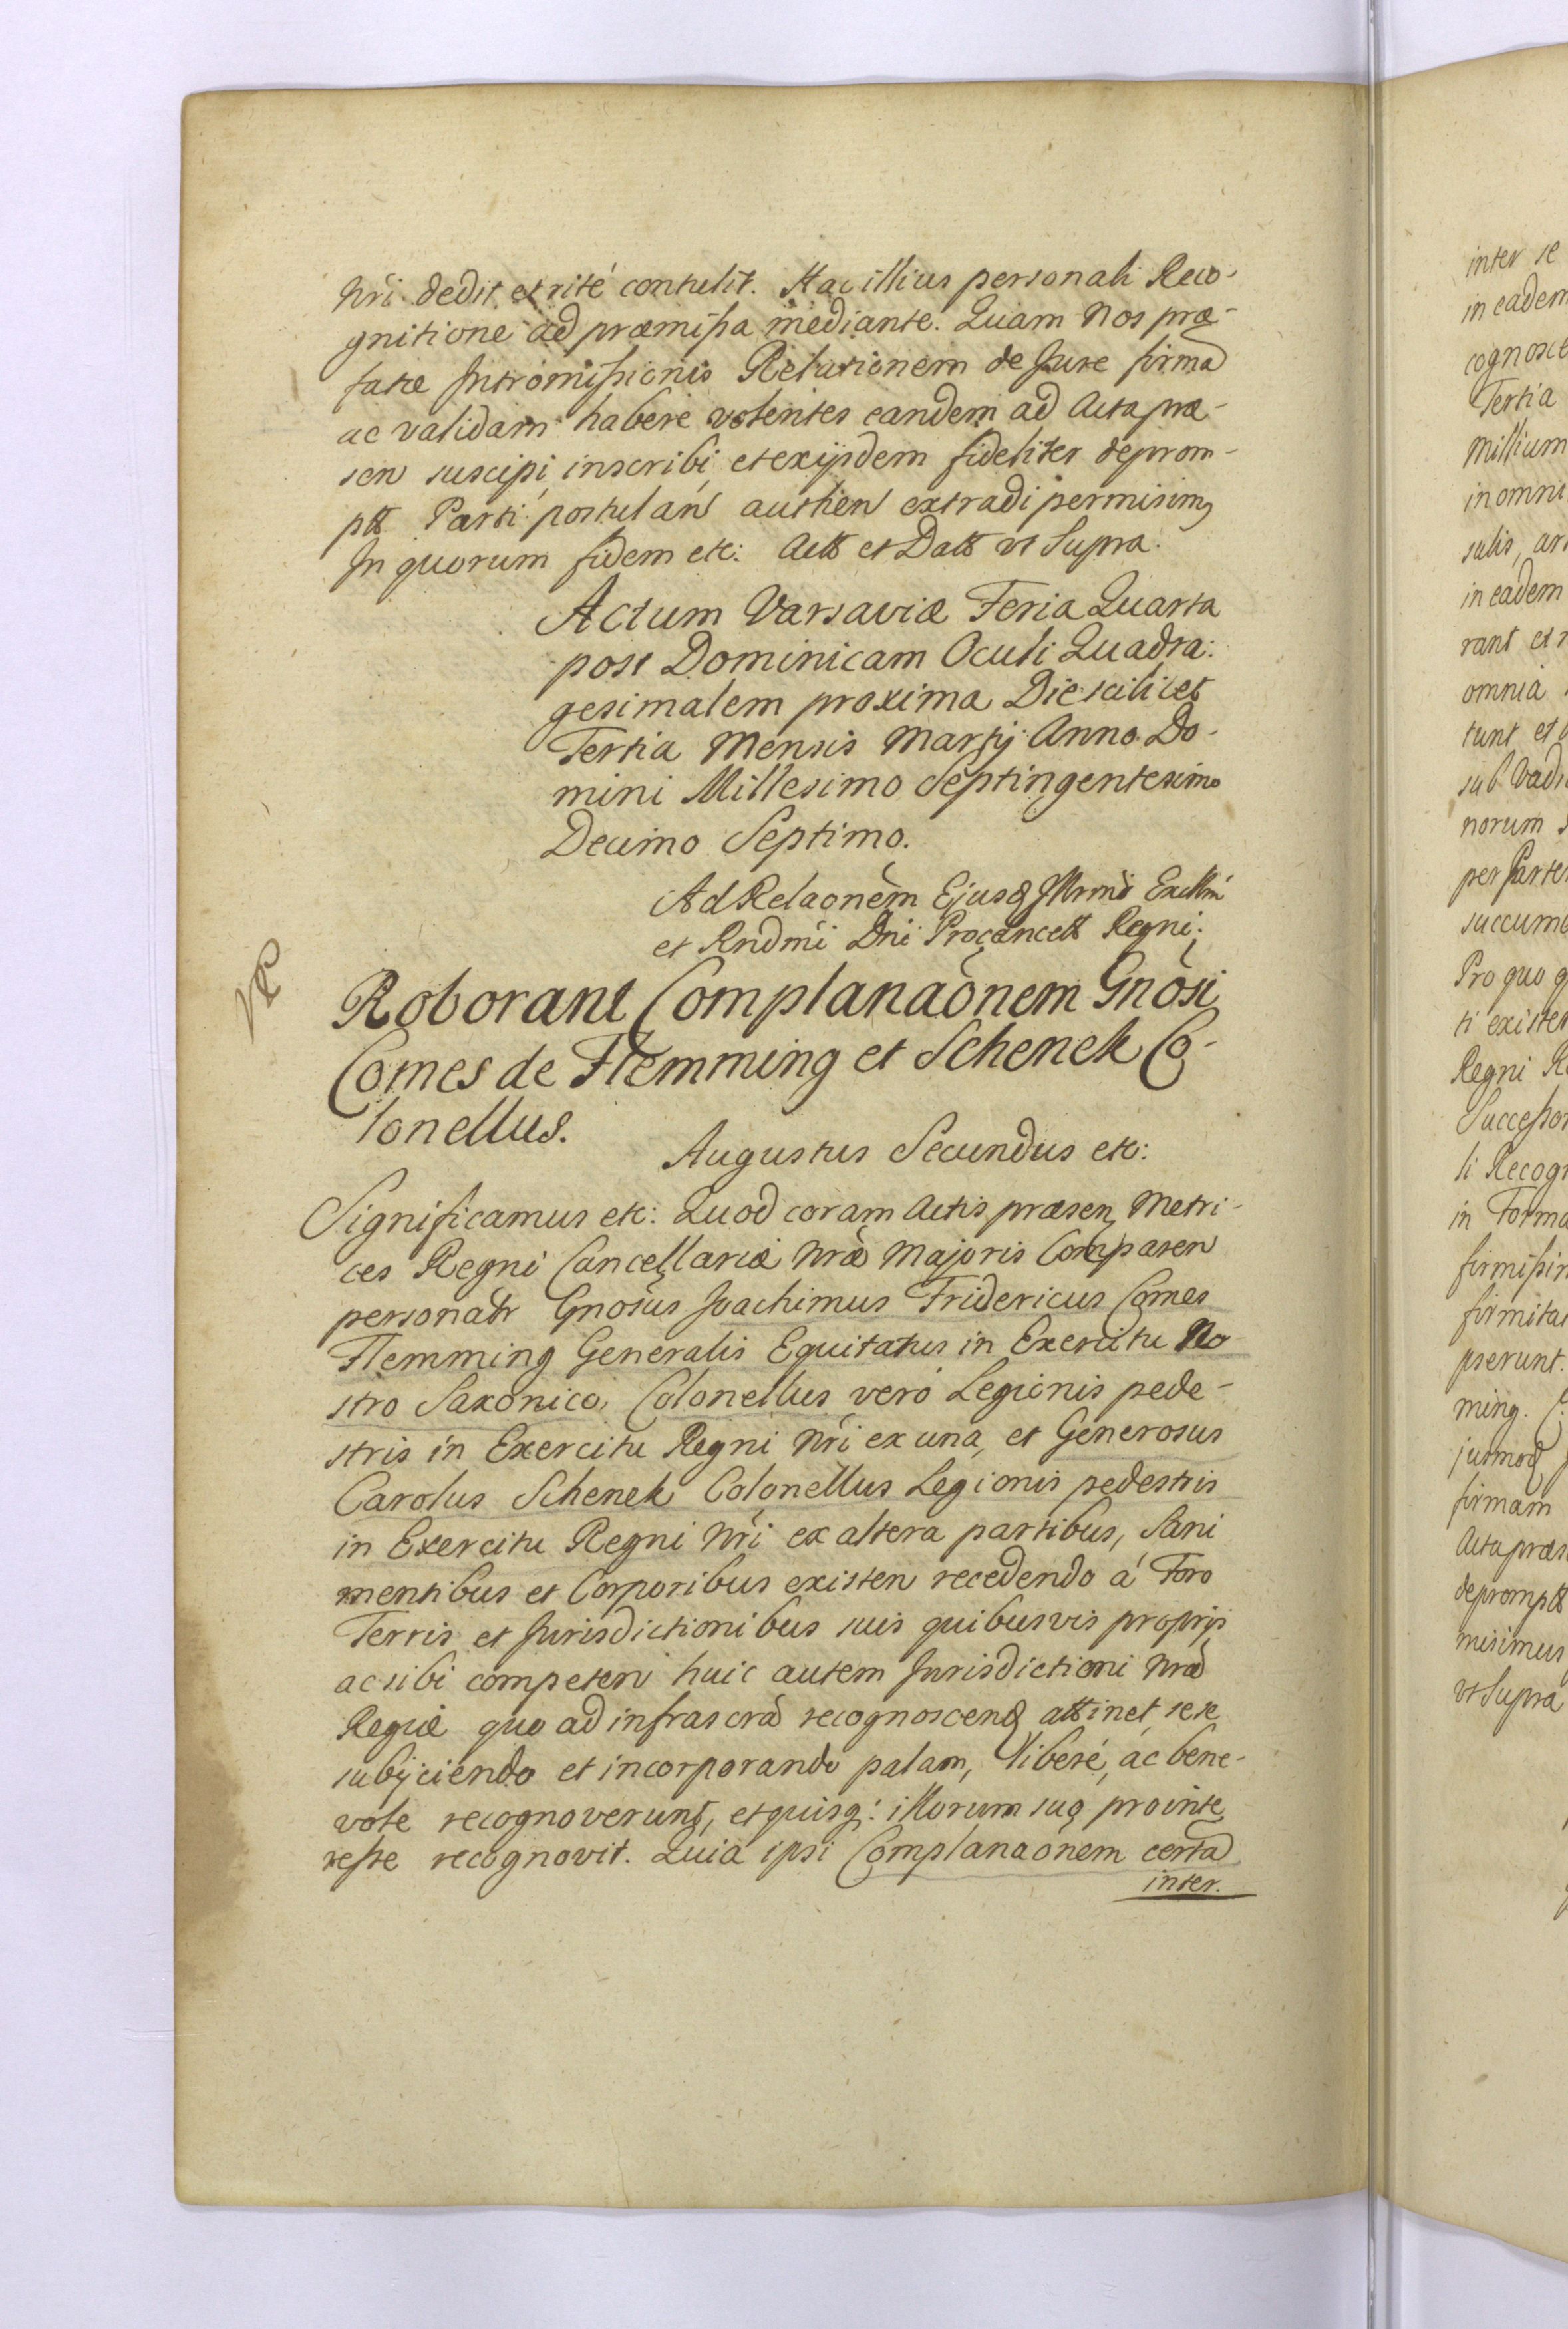 Nri dedit et rité contulit. Hac illius personali Reco-
gnitione ad præmissa mediante. Quam Nos præ-
fatæ Intromissionis Relationem de Jure firmā
ac validam habere volentes eandem ad Acta præ-
sen suscipi, inscribi, et exijsdem fideliter deprom-
ptt Parti postulan authen extradi permisimꝯ
In quorum fidem etc: Actt et Datt ut Supra.
Actum Varsaviæ Feria Quarta
post Dominicam Oculi Quadra:
gesimalem proxima Die scilicet
Tertia Mensis Martij Anno Do-
mini Millesimo Septingentesimo
Decimo Septimo.
Ad Relaonem Ejusd Illrmi Excllmi
et Rndmi Dni Procancell Regni.
Roborant Complanaonem Gnosi
Comes de Flemming et Schenek Co-
lonellus.
Augustus Secundus etc:
Significamus etc: Quod coram Actis præsen Metri-
ces Regni Cancellariæ Nræ Majoris Comparen
personalr Gnosus Joachimus Fridericus Comes
Flemming Generalis Equitatus in Exercitu No
stro Saxonico, Colonellus vero Legionis pede-
stris in Exercitu Regni Nri ex una, et Generosus
Carolus Schenek Colonellus Legionis pedestris
in Exercitu Regni Nri ex altera partibus, Sani
mentibus et Corporibus existen recedendo á Foro
Terris et Jurisdictionibus suis quibusvis proprijs
ac sibi competen huic autem Jurisdictioni Nræ
Regiæ quo ad infrascrā recognoscend attinet, sese
subijciendo et incorporando palam, liberé, ac bene-
vole recognoverunt, et quisq: illorum suo pro inte
resse recognovit. Quia ipsi Complanaonem certā
inter.
inter se
in eadem
cognosce
Tertia
Millium
in omni
salis, ar
in eadem
rant et r
omnia
tunt et
sub Vadi
norum s
per Parte
succum
Pro quo q
ti existen
Regni R
Successor
li Recogn
in Forma
firmissi
firmita
pserunt.
ming.
jusmod
firmam
Acta præs
deprompt
misimus
ut Supra